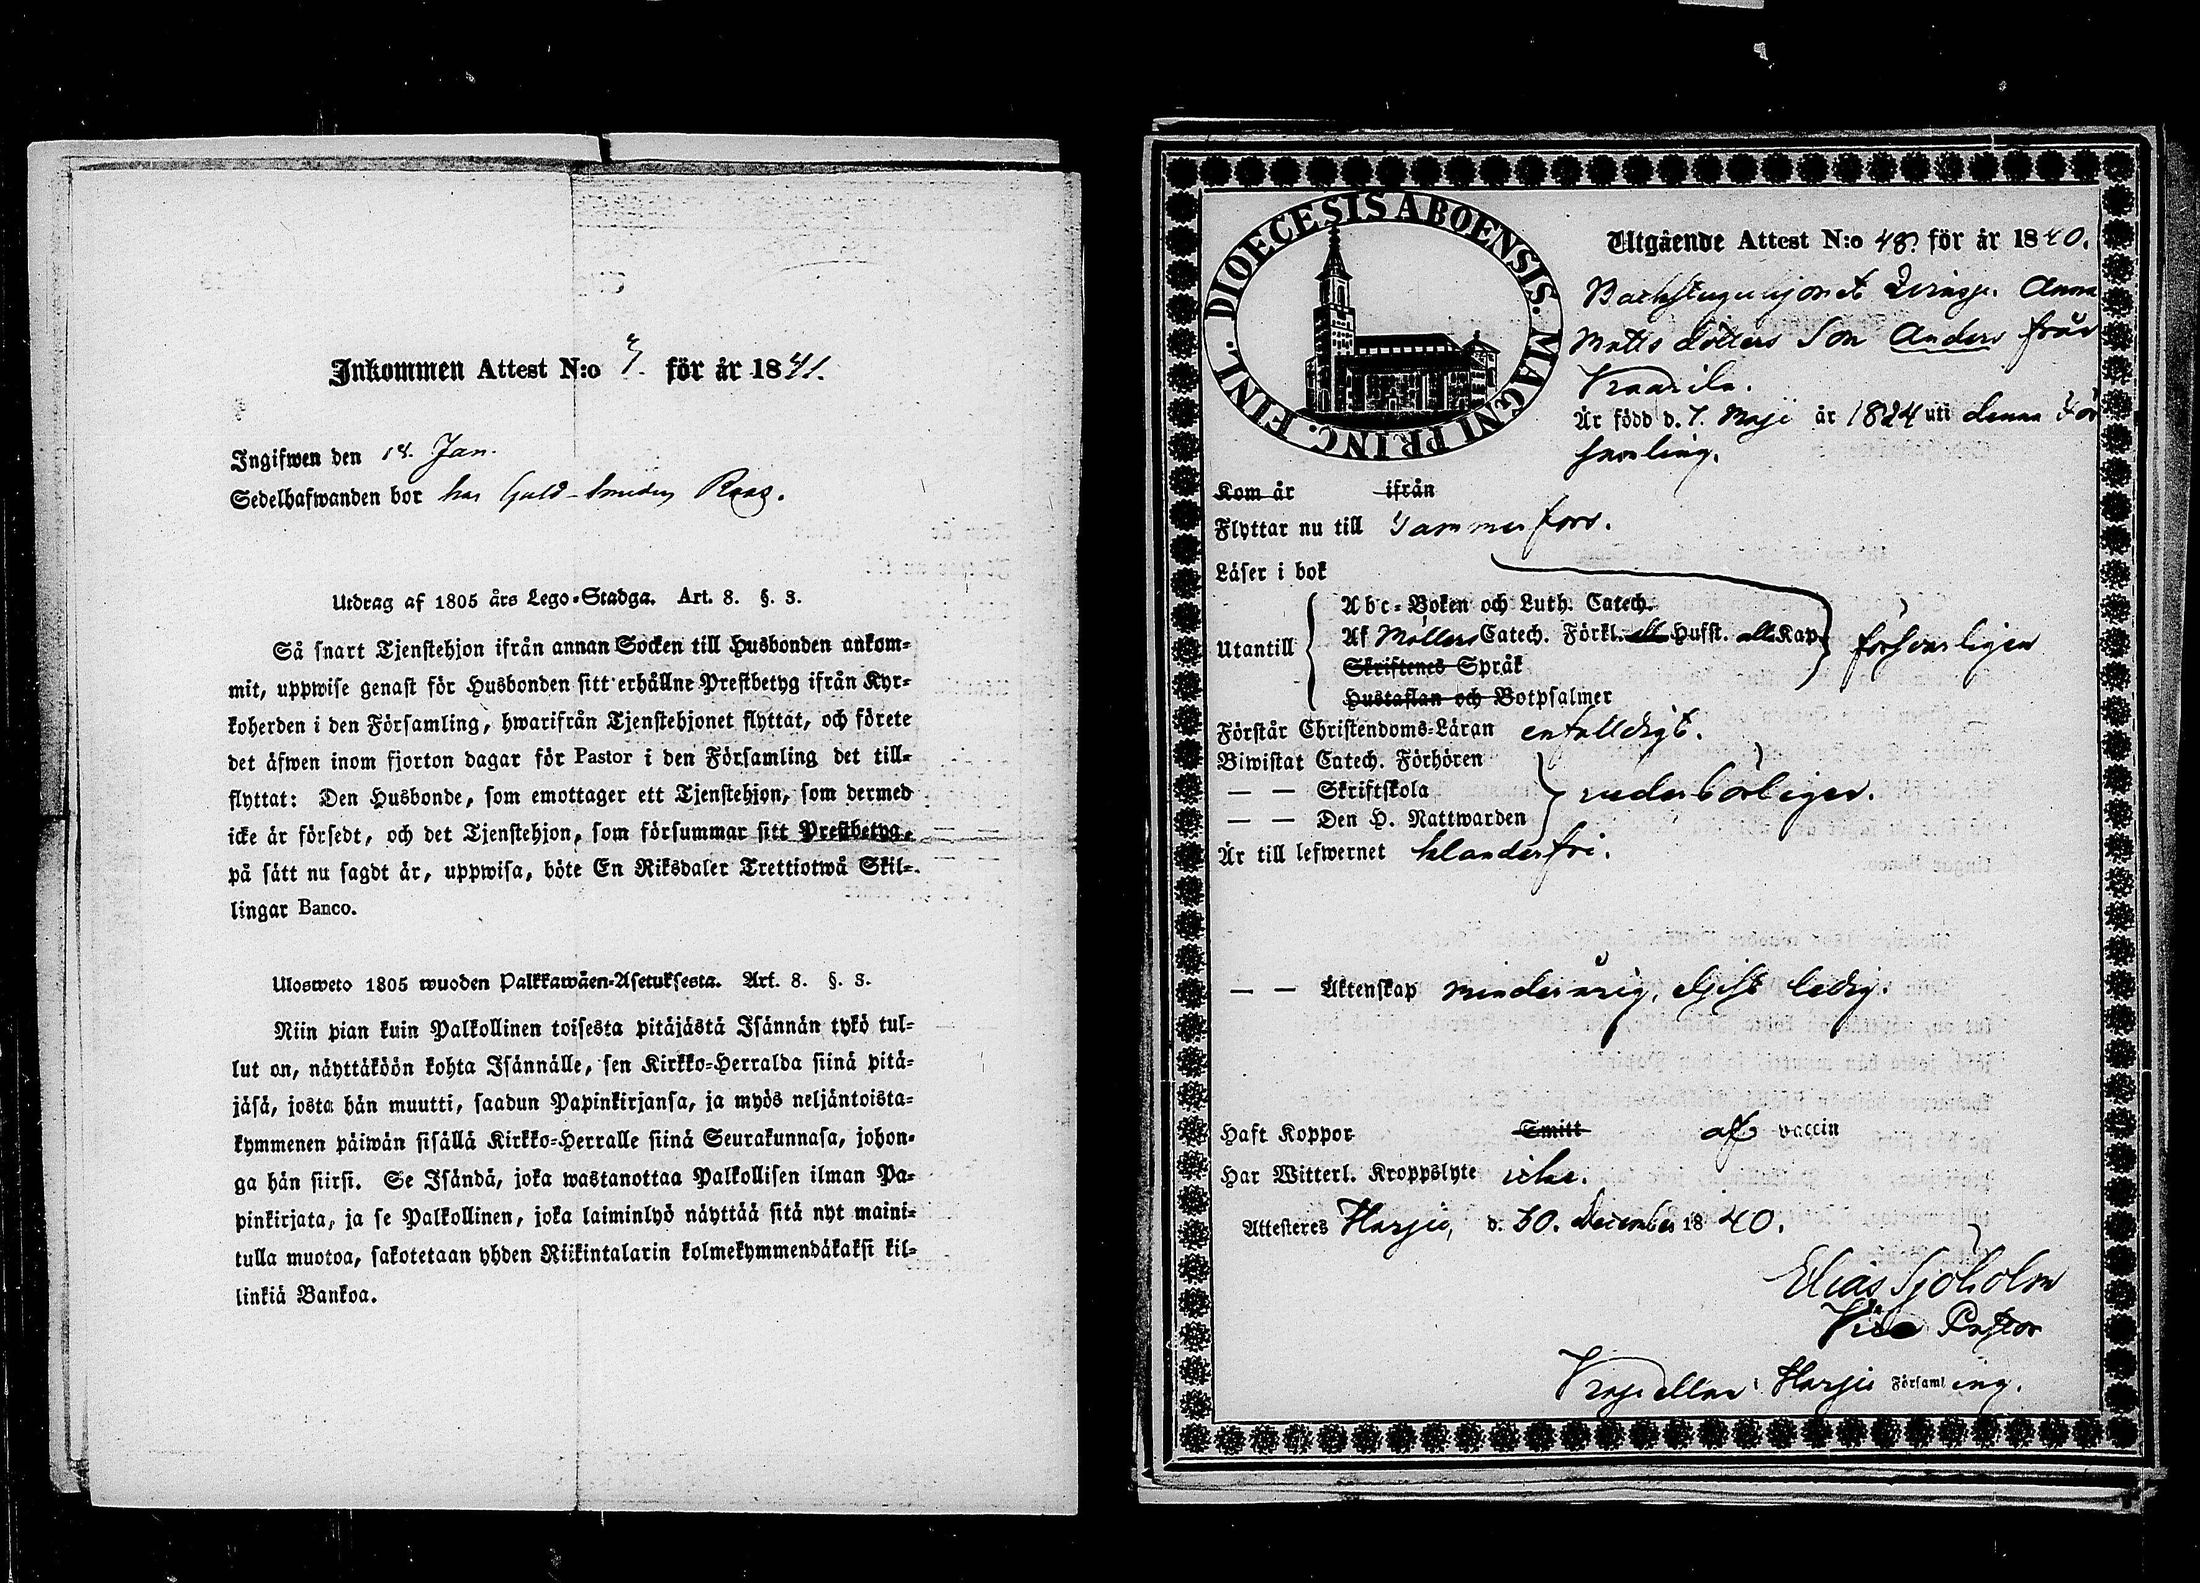 Inkommen Attest N:o 7. för år 1841.
Ingifwen den 18. Jan.
Sedelhafwanden bor hos Guld-Smeden Roos.
Utdrag af 1805 års Lego-Stadga. Art. 8. §. 3.
Så snart Tjenstehjon ifrån annan Socken till Husbonden ankom-
mit, uppwise genast för Husbonden sitt erhållne Prestbetyg ifrån Kyr-
koherden i den Församling, hwarifrån Tjenstehjonet flyttat, och förete
det äfwen inom fjorton dagar för Pastor i den Församling det till-
flyttat: Den Husbonde, som emottager ett Tjenstehjon, som dermed
icke är försedt, och det Tjenstehjon, som försummar sitt Prestbetyg,
på sätt nu sagdt är, uppwisa, böte En Riksdaler Trettiotwå Skil-
lingar Banco.
Ulosweto 1805 wuoden Palkkawäen-Asetuksesta. Art. 8. §. 3.
Niin pian kuin Palkollinen toisesta pitäjästä Isännän tykö tul-
lut on, näyttäköön kohta Isännälle, sen Kirkko-Herralda siinä pitä-
jäsä, josta hän muutti, saadun Papinkirjansa, ja myös neljäntoista-
kymmenen päiwän sisällä Kirkko-Herralle siinä Seurakunnasa, johon-
ga hän siirsi. Se Isändä, joka wastanottaa Palkollisen ilman Pa-
pinkirjata, ja se Palkollinen, joka laiminlyö näyttää sitä nyt maini-
tulla muotoa, sakotetaan yhden Riikintalarin kolmekymmendäkaksi kil-
linkiä Bankoa.
DIOECESIS ABOENSIS. MAGNI PRINC. FINL.
Utgående Attest N:o 48. för år 1840.
Anna
Matts dotters Son Anders från
Kaarila.
Är född d. 7. Maji år 1824 uti denna För
samling.
Kom år ifrån
Flyttar nu till Tammerfors.
Läser i bok
Utantill
Abc-Boken och Luth. Catech.
Af Möllers Catech. Förkl. all Hufst. all Kap.
Skriftenes Språk
Hustaflan och Botpsalmer
försvarligen
Förstår Christendoms-Läran enfalldigt.
Biwistat Catech. Förhören
— — Skriftskola
— — Den H. Nattwarden
vederbörligen.
Är till lefwernet klanderfri.
— — Äktenskap minderårig, ledig.
Haft Koppor Smitt af vaccin
Har Witterl. Kroppslyte icke.
Attesteres Harju, d. 30. December 1840.
Elias Sjöholm
Vice Pastor
Kapellan i Harju Församling.